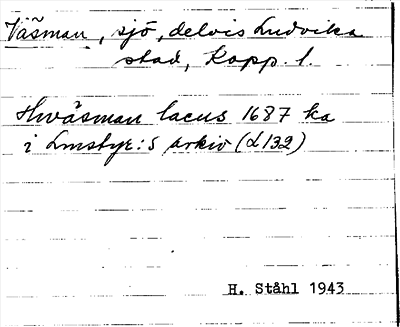 Väsman, sjö, delvis Ludvika
stad, Kopp. l.
Hwäsman lacus 1687 ka
i Lmstyr:s arkiv (L132)
H. Ståhl 1943